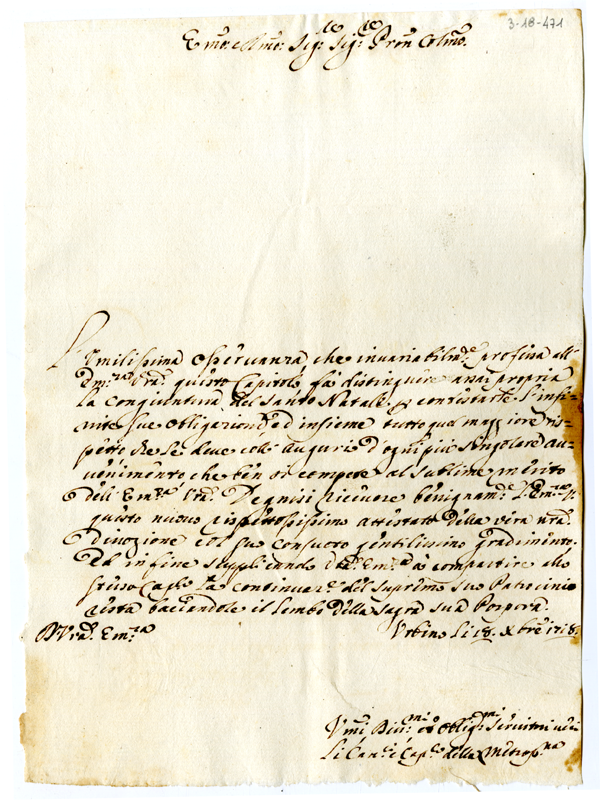 3-18-471
Emo. e Rmo. Sigr. Sigr. Pron Colmo.
L'umilissima osservanza che invariabilmte. professa all'
Em.za Vra. questo Capitolo fa distinguere assai propria
la congiuntura del Santo Natale p contestarle l'infi-
nite sue obligazioni ed insieme tutto quel maggiore ris-
petto che se le deve coll' augurio d'ogni più singolare au-
venimento che ben si compete al sublime merito
dell' Em.za Vra. Degnisi ricevere benignamte. l'Em.za V.
questo nuovo rispettosissimo attestato della vera nra.
divozione col suo consueto gentilissimo gradimento.
Ed in fine supplicando Em.za a compartire allo
stesso Caplo. la continuazne. del supremo suo Patrocinio
resta baciandole il lembo della Sagra sua Porpora.
D. Vra. Em.za
Urbino li 18. Xbre 1718.
Umi. Divmi. ed Obligmi. Servitori veri
Li Canci. e Caplo. della Metropna.